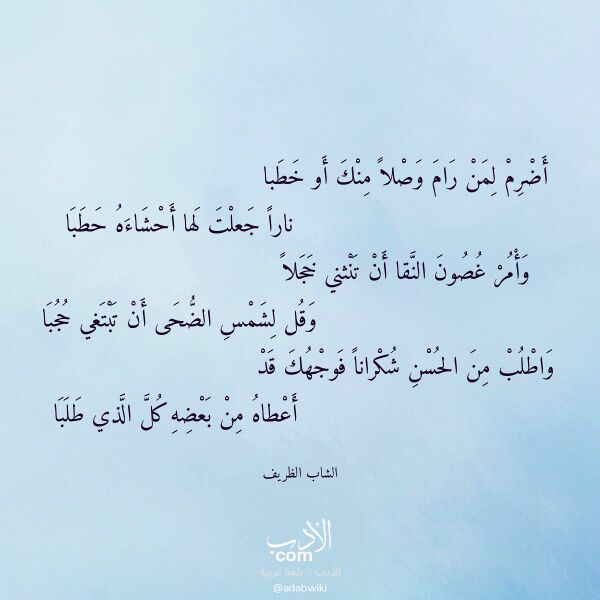 أَضْرِمْ لِمَنْ رَامَ وَصْلاً مِنْكَ أَو خَطَبا
ناراً جَعلْتَ لَها أَحْشَاءَهُ حَطَبَا
وَأْمُرْ غُصُونَ النَّقا أَنْ تَنْثني خَجَلاً
وَقُل لِشَمْسِ الضُّحَى أَنْ تَبْتَغي حُجُبَا
وَاطْلُبْ مِنَ الحُسْنِ شُكْراناً فَوَجْهُكَ قَدْ
أَعْطاهُ مِنْ بَعْضِهِ كُلَّ الَّذي طَلَبَا
الشاب الظريف
الأدب
com
الأدب .. بلغة عربية
@adabwiki